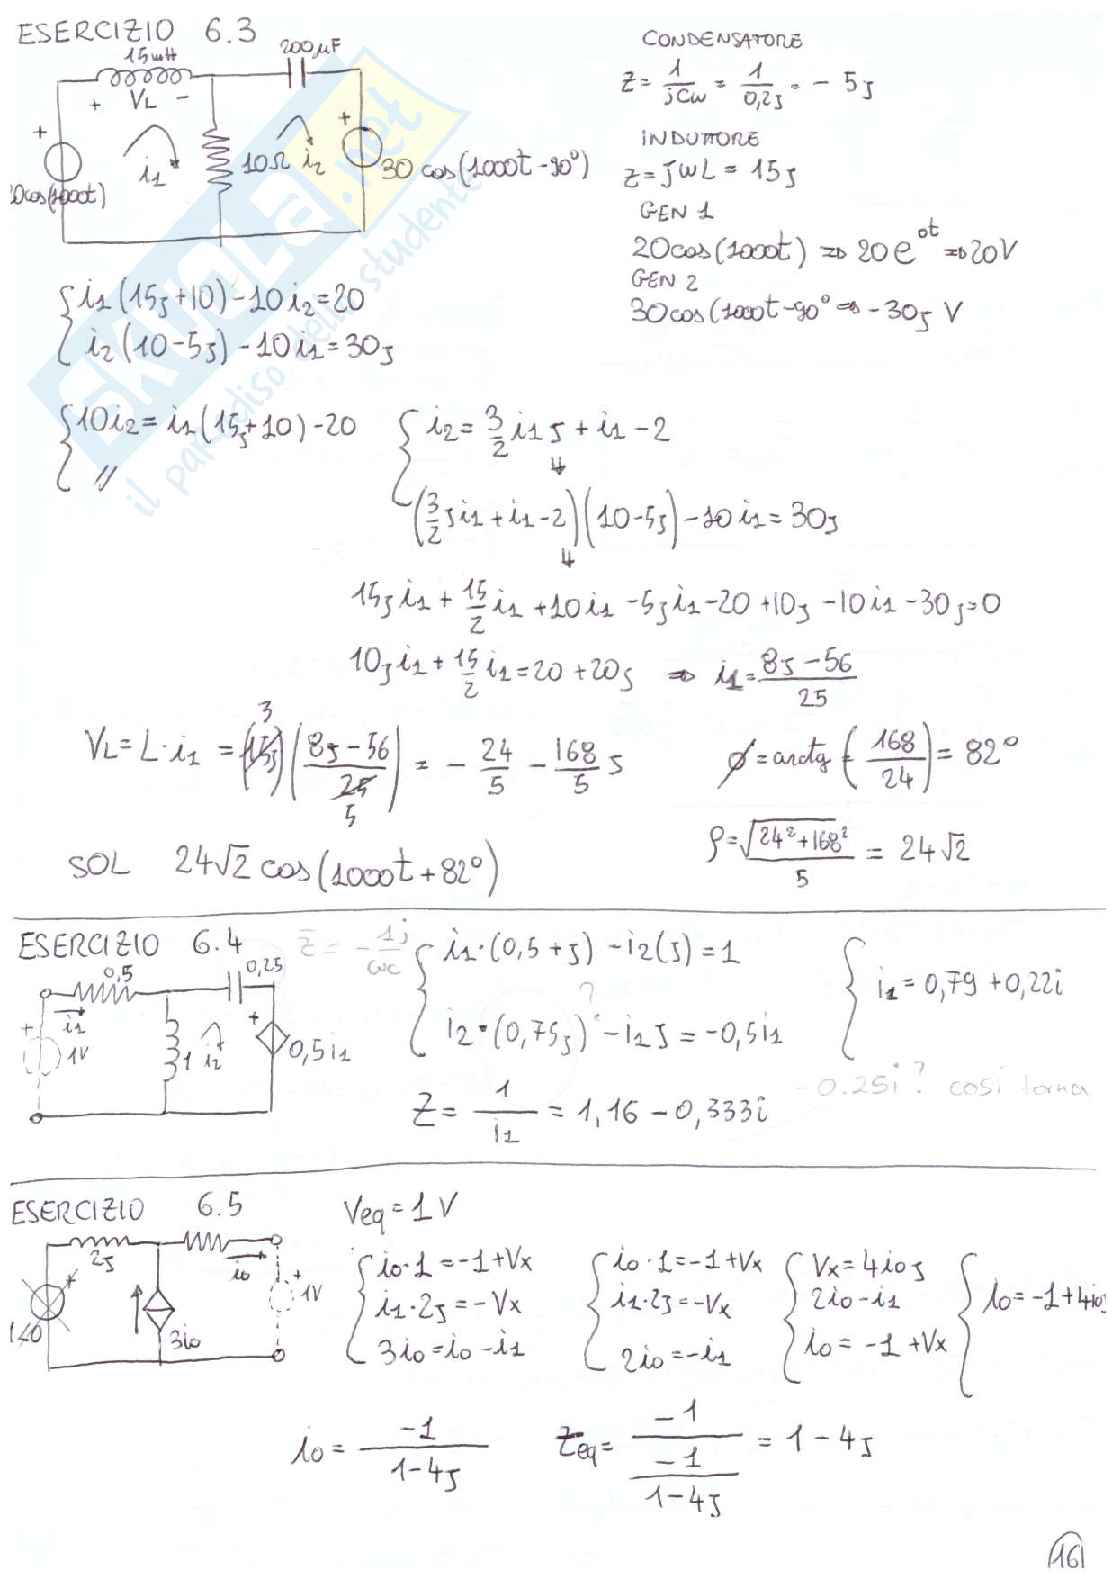 ESERCIZIO 6.3
15mH
200μF
+ VL -
+
i1
10Ω
i2
+
30 cos(1000t-90°)
0cos(1000t)
CONDENSATORE
Z = 1/jCω = 1/0,2j = -5j
INDUTTORE
Z = jωL = 15j
GEN 1
20cos(1000t) => 20e^0t => 20V
GEN 2
30cos(1000t-90° => -30j V
{ i1(15j+10)-10i2=20
i2(10-5j)-10i1=30j
{ 10i2 = i1(15j+10)-20
//
{ i2 = 3/2 i1 j + i1 - 2
(3/2 j i1 + i1 - 2)(10-5j)-10i1 = 30j
15j i1 + 15/2 i1 + 10i1 - 5j i1 - 20 + 10j - 10i1 - 30j=0
10j i1 + 15/2 i1 = 20 + 20j => i1 = 8j-56/25
VL = L·i1 = (15j) 3 (8j-56/25 5) = -24/5 - 168/5 j
φ = arctg (168/24) = 82°
ρ = √24²+168²/5 = 24√2
SOL 24√2 cos(1000t+82°)
ESERCIZIO 6.4
z̄ = -1j/ωc
0,5
0,25
+
i1
1V
1
i2
+
0,5i1
{ i1·(0,5+j) - i2(j) = 1
?
i2·(0,75j) - i1 j = -0,5i1
{ i1 = 0,79 + 0,22i
Z = 1/i1 = 1,16 - 0,333i
- 0.25i? così torna
ESERCIZIO 6.5
2j
+
1∠0
3i0
i0
+
1V
Veq = 1V
{ i0·1 = -1+Vx
i1·2j = -Vx
3i0 = i0 - i1
{ i0·1 = -1+Vx
i1·2j = -Vx
2i0 = -i1
{ Vx = 4i0j
2i0 - i1
i0 = -1 + Vx
{ i0 = -1+4i0j
i0 = -1/1-4j
Zeq = -1/-1/1-4j = 1-4j
16
SKUOLA.net
il paradiso dello studente